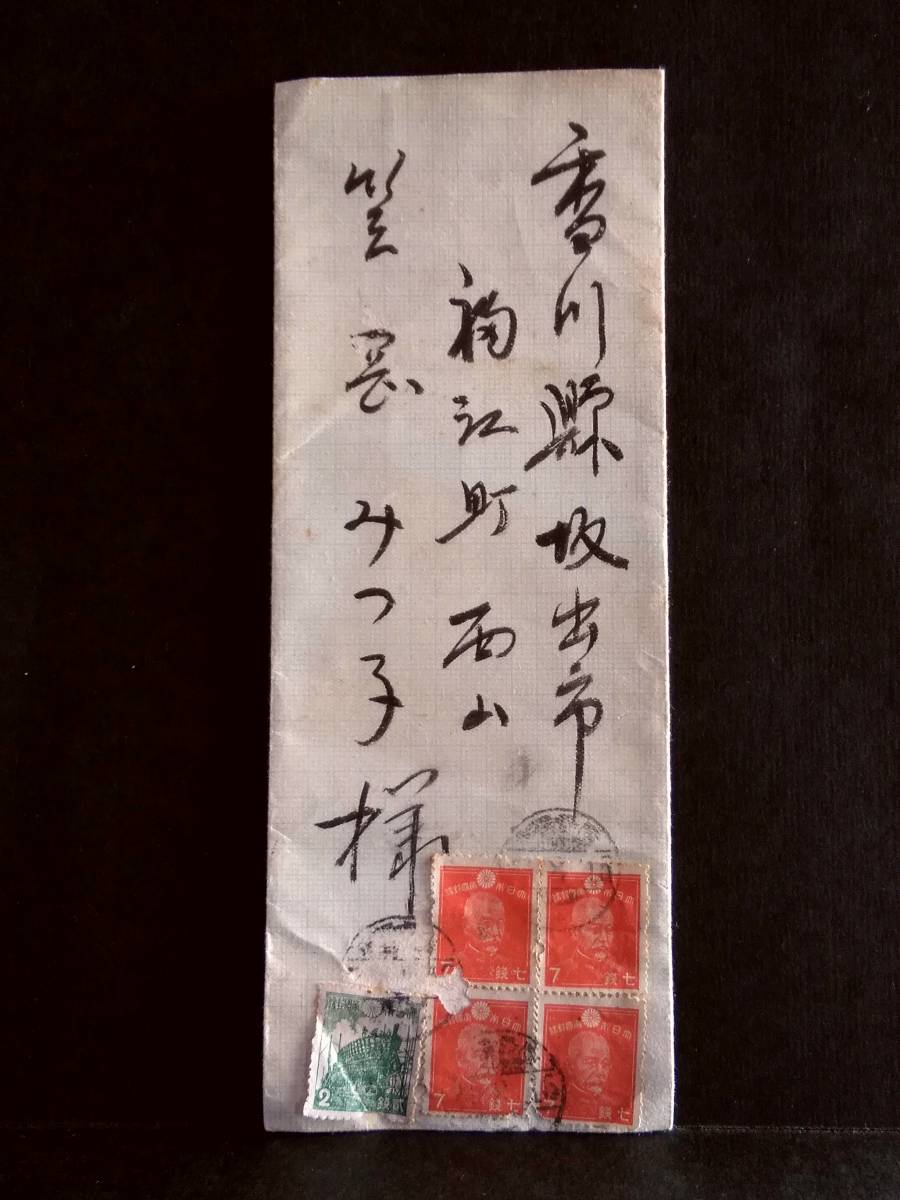 香川縣坂出市
福江町西山
笠岡みつ子様
大日本帝國郵便
7 七銭
大日本帝國郵便
7 七銭
大日本帝國郵便
7
大日本帝國郵便
七銭
大日本帝國郵便
2 貳銭